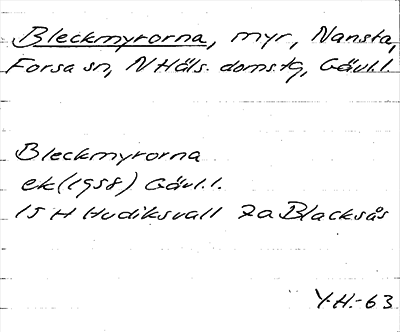 Bleckmyrorna, myr, Nansta,
Forsa sn, N Häls. doms.tg, Gävl.l.
Bleckmyrorna
ek (1958) Gävl.l.
15 H Hudiksvall 7a Blacksås
Y.H.-63